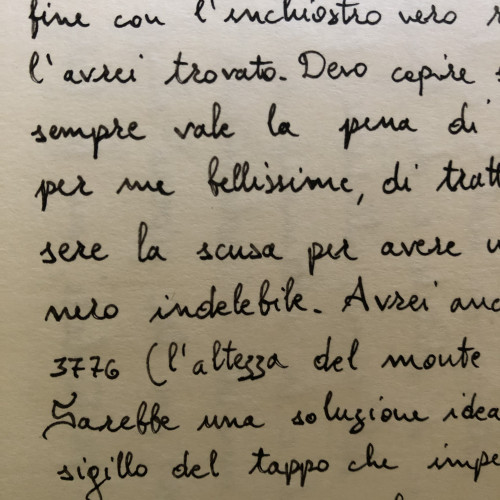 fine con l'inchiostro nero
l'avrei trovato. Devo capire s
sempre vale la pena di
per me bellissime, di tratt
sere la scusa per avere u
nero indelebile. Avrei anc
3776 (l'altezza del monte
Sarebbe una soluzione idea
sigillo del tappo che impe